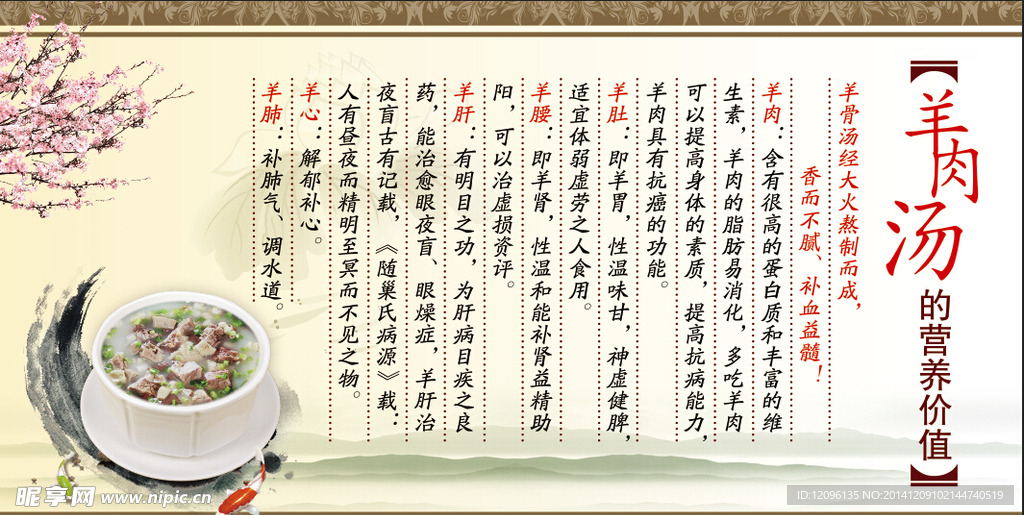 【羊肉汤的营养价值】
羊骨汤经大火熬制而成，
香而不腻、补血益髓！
羊肉：含有很高的蛋白质和丰富的维
生素，羊肉的脂肪易消化，多吃羊肉
可以提高身体的素质，提高抗病能力，
羊肉具有抗癌的功能。
羊肚：即羊胃，性温味甘，神虚健脾，
适宜体弱虚劳之人食用。
羊腰：即羊肾，性温和能补肾益精助
阳，可以治虚损资评。
羊肝：有明目之功，为肝病目疾之良
药，能治愈眼夜盲、眼燥症，羊肝治
夜盲古有记载，《随巢氏病源》载：
人有昼夜而精明至冥而不见之物。
羊心：解郁补心。
羊肺：补肺气、调水道。
昵享网 www.nipic.cn
ID:12096135 NO:20141209102144740519